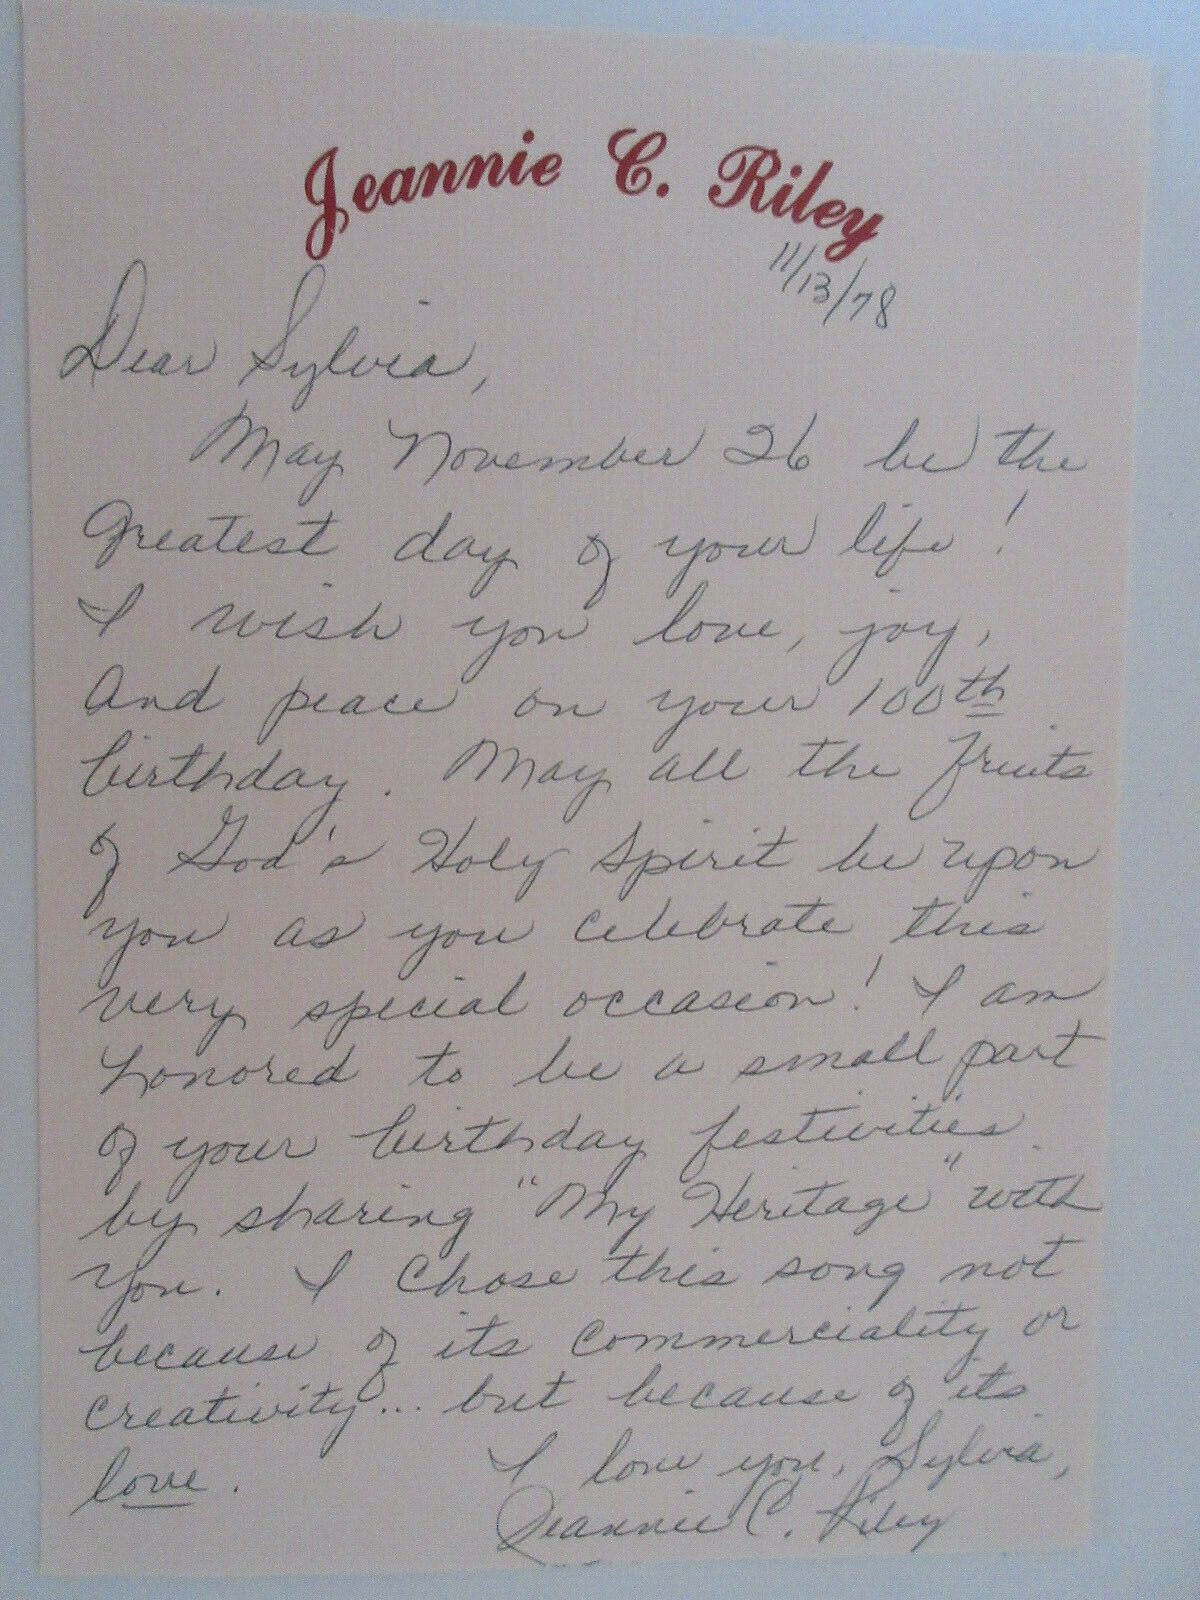 Jeannie C. Riley
11/13/78
Dear Sylvia,
May November 26 be the
Greatest day of your life!
I wish you love, joy,
And peace on your 100th
birthday. May all the Fruits
of God's Holy Spirit be upon
you as you celebrate this
very special occasion! I am
honored to be a small part
of your birthday festivities
by sharing "My Heritage" with
you. I chose this song not
because of its commerciality or
creativity... but because of its
love.
I love you, Sylvia,
Jeannie C. Riley